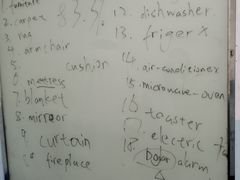 furniture
2. carpet
3. rug
4. armchair
5. cushion
6. mattress
7. blanket
8. mirror
9. curtain
fireplace
83.5%
12. dishwasher
13. friger x
14. air-conditioner
15. microwave-oven
16 toaster
electric
18 alarm